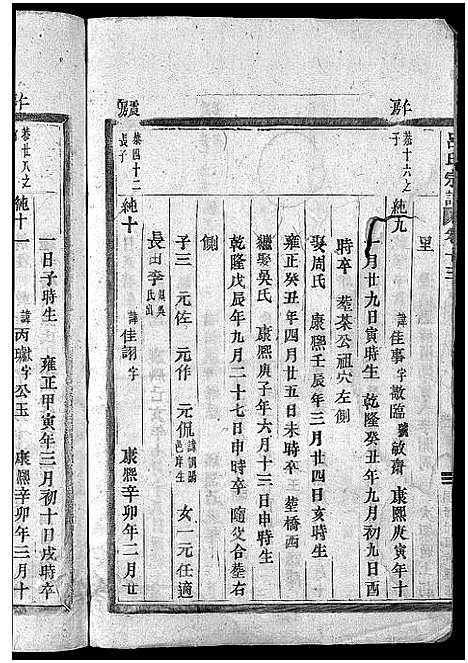 呂氏宗譜 卷十三
里
恭十六之子
純九 諱佳事字敬臨號敏齋 康熙庚寅年十
一月廿九日寅時生 乾隆癸丑年九月初九日酉
時卒 塟菜公祖穴左側
娶周氏 康熙壬辰年三月廿四日亥時生
雍正癸丑年四月廿五日未時卒 塟橋西
繼娶吳氏 康熙庚子年六月十三日申時生
乾隆戊辰年九月二十七日申時卒 隨父合塟右
側
子三 元佐 元作 元侃 女一元任適
長田李氏出
恭四十二長子
純十 諱佳詡字 康熙辛卯年二月廿
恭廿八之
純十一 諱丙瓛字公玉 康熙辛卯年三月十
一日子時生 雍正甲寅年三月初十日戌時卒